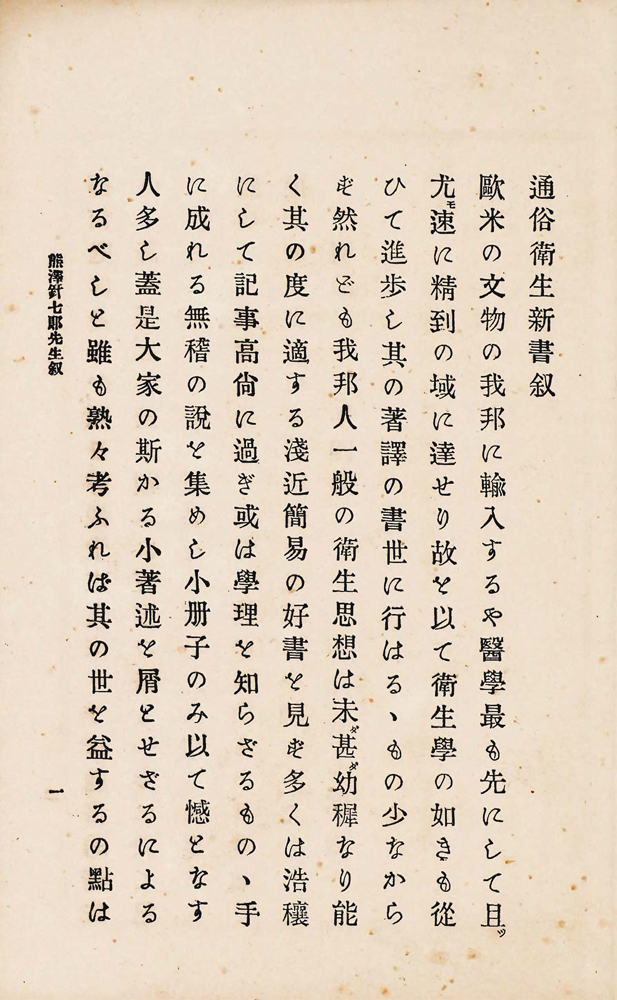 通俗衞生新書叙
歐米の文物の我邦に輸入するや醫學最も先にして且ッ
尤モ速に精到の域に達せり故を以て衞生學の如きも從
ひて進歩し其の著譯の書世に行はるゝもの少なから
ず然れども我邦人一般の衞生思想は未ダ甚ダ幼穉なり能
く其の度に適する淺近簡易の好書を見ず多くは浩穰
にして記事高尙に過ぎ或は學理を知らざるものゝ手
に成れる無稽の說を集めし小册子のみ以て憾となす
人多し蓋是大家の斯かる小著述を屑とせざるによる
なるべしと雖も熟々考ふれば其の世を益するの點は
熊澤針七郞先生叙
一